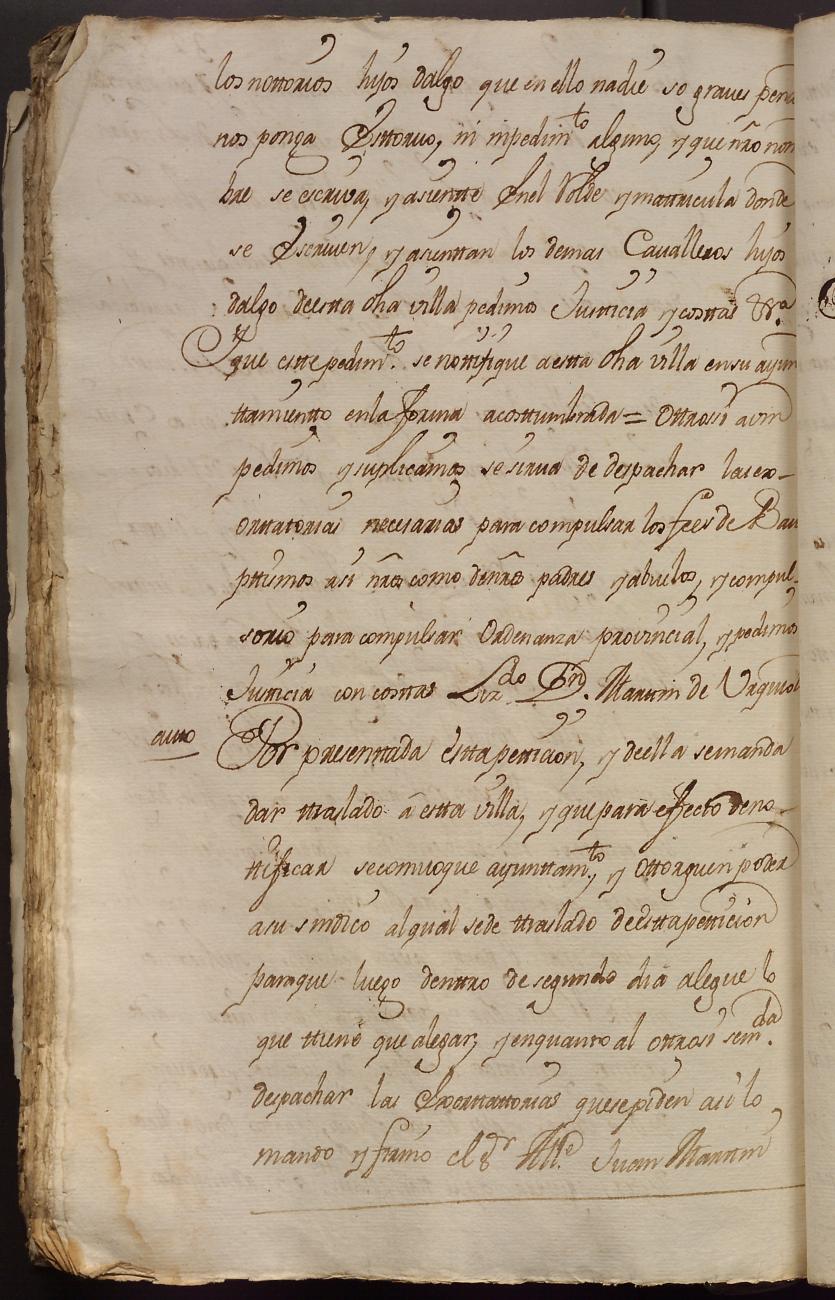 los nottorios hijos dalgo que en ello nadie so graves penas
nos ponga Esttorvo, ni inpedimto alguno, y que nro nom
bre se escriva, y asientte Enel Rolde y mattricula donde
se Escriven, y asienttan los demas Cavalleros hijos
dalgo de estta dha villa pedimos Justticia y costtas &ra
Y que estte pedimto. se nottifique a estta dha villa en su ayun
ttamientto en la forma acosttumbrada = Ottrossi a vm
pedimos y suplicamos se sirva de despachar las ex-
orttatorias necesarias para compulsar los fees de Bau
pttismos asi nros como de nros padres y abuelos, y compul-
sorio para compulsar Ordenanza provincial, y pedimos
Justticia con costtas Lizdo Dn. Marttin de
autto Por presenttada estta petticion, y de ella se manda
dar ttraslado a estta villa, y que para effecto de no-
ttificar se comvoque ayunttamto, y Ottorguen poder
a su sindico al qual se de ttraslado de estta petticion
para que luego denttro de segundo dia alegue lo
que ttiene que alegar, y en quantto al ottrosi semda.
despachar las Exorttattorias que se piden asi lo
mando y firmo el Sr Alle. Juan Marttin